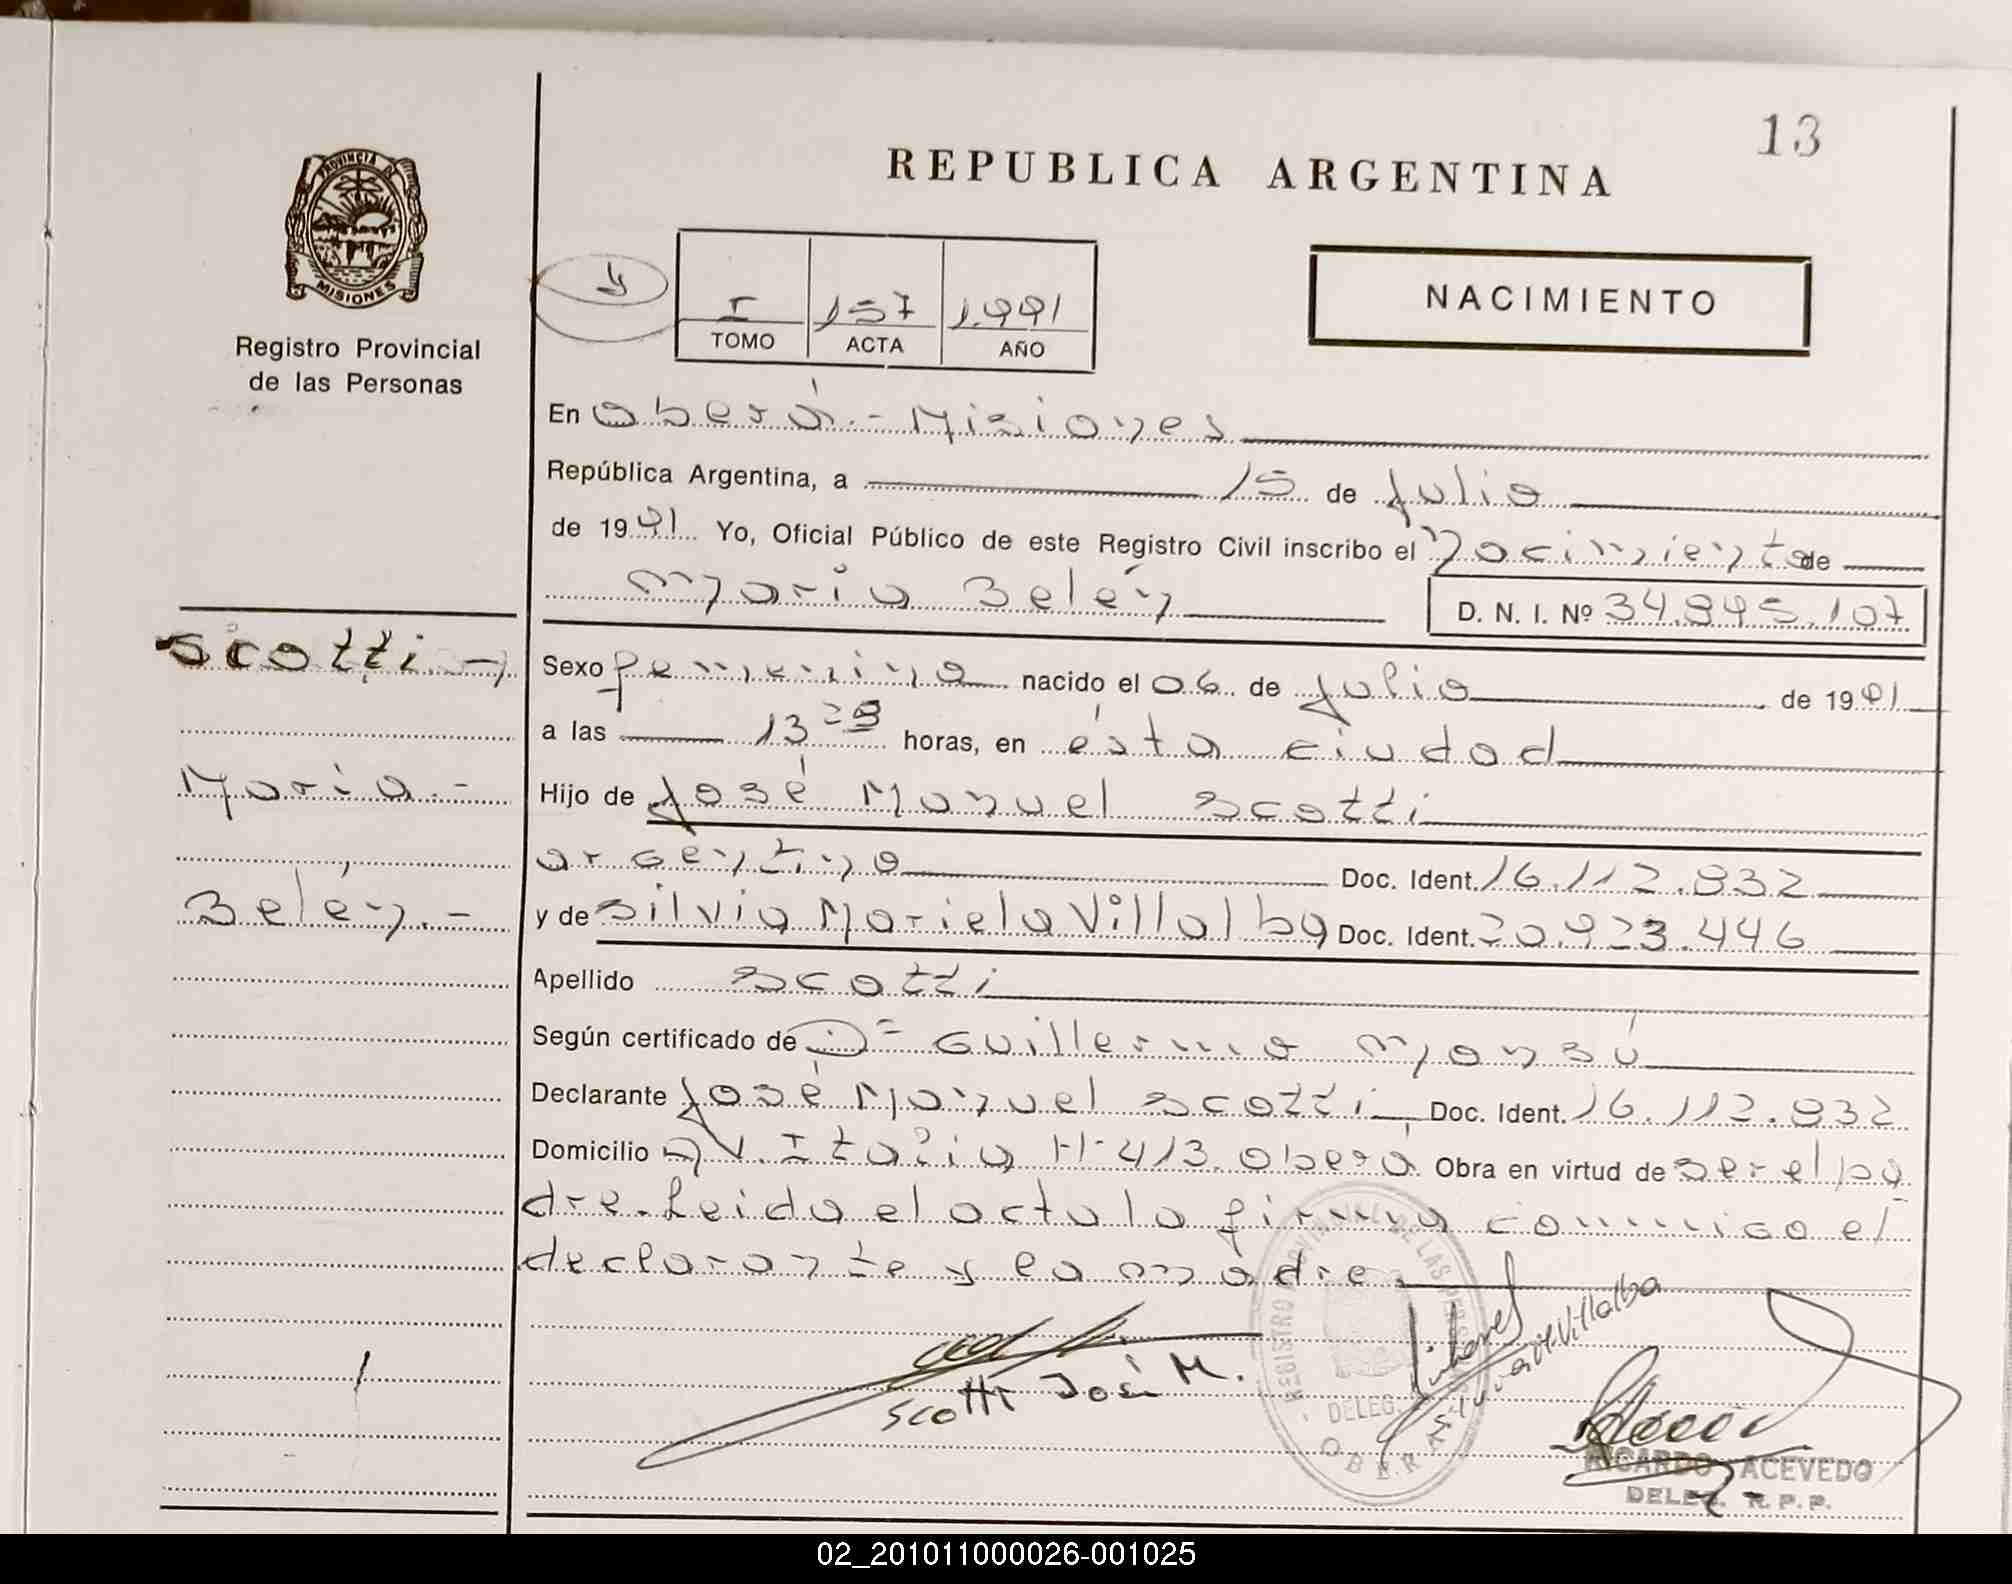 13
REPUBLICA ARGENTINA
PROVINCIA DE
MISIONES
Registro Provincial
de las Personas
I 157 1.991
TOMO ACTA AÑO
NACIMIENTO
En Oberá - Misiones
República Argentina, a 15 de Julio
de 1991 Yo, Oficial Público de este Registro Civil inscribo el Nacimiento de
Maria Belén D. N. I. Nº 34.895.107
Scotti.-
Sexo femenino nacido el 06 de Julio de 1991
a las 13 horas, en ésta ciudad
Maria.-
Hijo de José Manuel Scotti
argentino Doc. Ident. 16.112.832
Belén.-
y de Silvia Mariela Villalba Doc. Ident. 20.923.446
Apellido Scotti
Según certificado de Dr Guillermo Mansú
Declarante José Manuel Scotti Doc. Ident. 16.112.832
Domicilio AV. Italia Nº 413. Oberá Obra en virtud de ser el pa
dre. Leida el acta la firma conmigo el
declarante y la madre.
Scotti José M.
Villalba
REGISTRO PROVINCIAL DE LAS PERSONAS
DELEG.
OBERA
RICARDO ACEVEDO
DELEG. R. P. P.
02_201011000026-001025